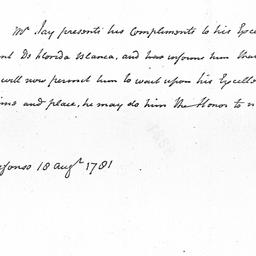 Mr. Jay presents his Compliments to his Exce
nt De Florida blanca, and has informs him tha
will now permit him to wait upon his Excelle
ime and place, he may do him the Honor to n
efonso 18 Augt. 1781